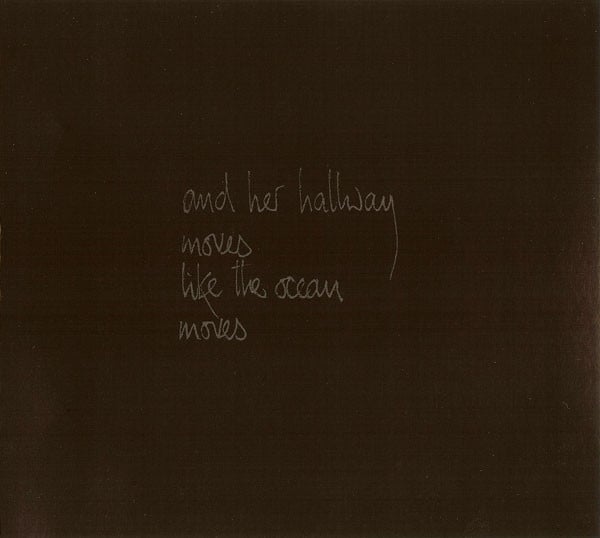 and her hallway
moves
like the ocean
moves